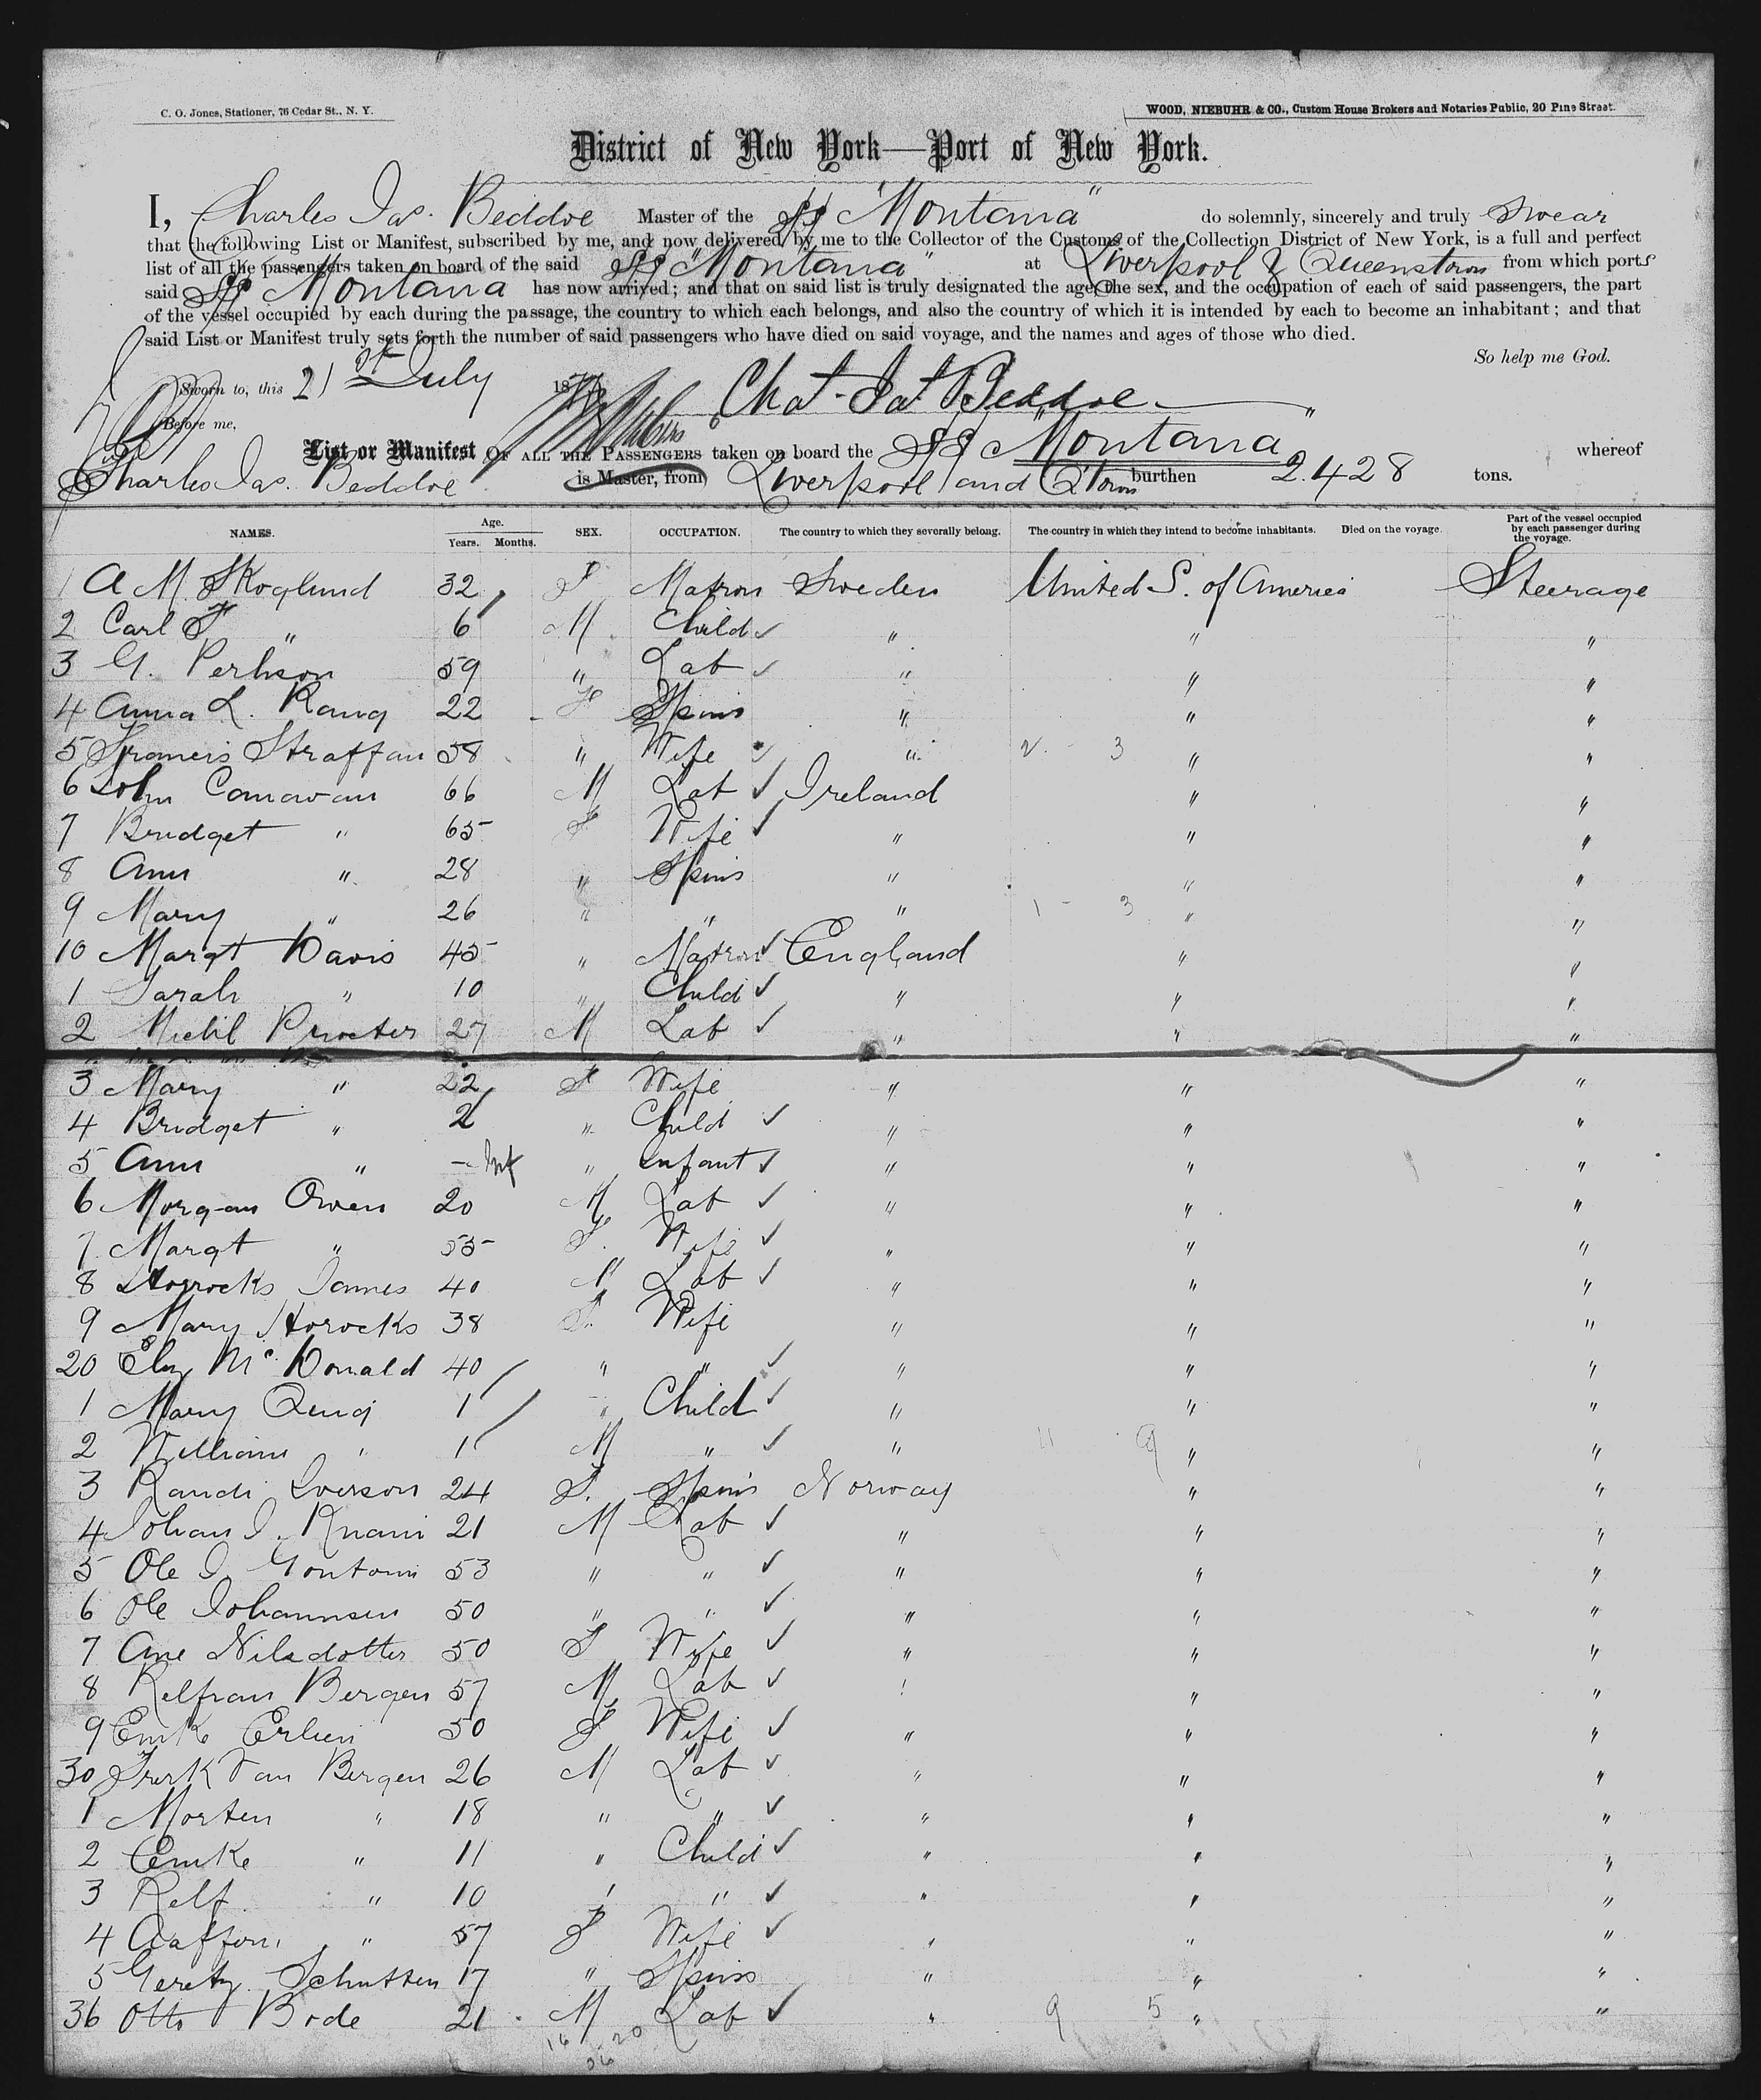 C. O. Jones, Stationer, 76 Cedar St., N. Y.
WOOD, NIEBUHR & CO., Custom House Brokers and Notaries Public, 20 Pine Street.
District of New York—Port of New York.
I, Charles Jas. Beddoe Master of the SS "Montana" do solemnly, sincerely and truly swear
that the following List or Manifest, subscribed by me, and now delivered by me to the Collector of the Customs of the Collection District of New York, is a full and perfect
list of all the passengers taken on board of the said SS "Montana" at Liverpool & Queenstown from which ports
said SS Montana has now arrived; and that on said list is truly designated the age, the sex, and the occupation of each of said passengers, the part
of the vessel occupied by each during the passage, the country to which each belongs, and also the country of which it is intended by each to become an inhabitant; and that
said List or Manifest truly sets forth the number of said passengers who have died on said voyage, and the names and ages of those who died.
So help me God.
Sworn to, this 21st July 187
Chas. Jas Beddoe
Before me,
List or Manifest OF ALL THE PASSENGERS taken on board the SS "Montana" whereof
Charles Jas. Beddoe is Master, from Liverpool and Q'town burthen 2.428 tons.
NAMES. Age. Years. Months. SEX. OCCUPATION. The country to which they severally belong. The country in which they intend to become inhabitants. Died on the voyage. Part of the vessel occupied by each passenger during the voyage.
1 A M Skoglund 32 F Matron Sweden United S. of America Steerage
2 Carl F " 6 M Child " " "
3 G. Perhson 59 " Lab " " "
4 Anna L. Rang 22 F Spins " " "
5 Francis Straffan 58 " Wife " 2 - 3 " "
6 John Canavan 66 M Lab Ireland " "
7 Bridget " 65 F Wife " " "
8 Ann " 28 " Spins " " "
9 Mary " 26 " " " 1 - 3 " "
10 Margt Davis 45 " Matron England " "
1 Sarah " 10 " Child " " "
2 Michl Procter 27 M Lab " " "
3 Mary " 22 F Wife " " "
4 Bridget " 2 " Child " " "
5 Ann " - Inf " Infant " " "
6 Morgan Owen 20 M Lab " " "
7 Margt " 55 F. Wife " " "
8 Horrocks James 40 M Lab " " "
9 Mary Horocks 38 F. Wife " " "
20 Eliz Mc Donald 40 " " " " "
1 Mary 1 " Child " " "
2 William " 1 M " " 11 9 " "
3 Randi Iverson 24 F. Spins Norway " "
4 Johan I. 21 M Lab " " "
5 Ole I. 53 " " " " "
6 Ole Johannsen 50 " " " " "
7 Ane Nilsdotter 50 F Wife " " "
8 Relfran Bergen 57 M Lab " " "
9 Emke 50 F Wife " " "
30 Frerk Van Bergen 26 M Lab " " "
1 Morten " 18 " " " " "
2 Emke " 11 " Child " " "
3 Relf " 10 " " " " "
4 " 57 F Wife " " "
5 Schutten 17 " Spins " " "
36 Otto Bode 21 M Lab " 9 5 " "
16 20
36